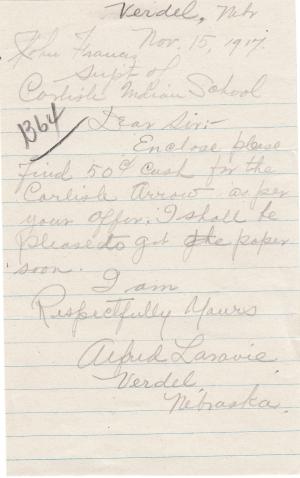 Verdel, Nebr
Nov. 15, 1917.
John Francis
Supt of
Carlisle Indian School
1364
Dear Sir:-
Enclose please
find 50¢ cash for the
Carlisle Arrow as per
your offer; I shall be
pleased to get the paper
soon.
I am
Respectfully Yours
Alfred Laravie
Verdel,
Nebraska.